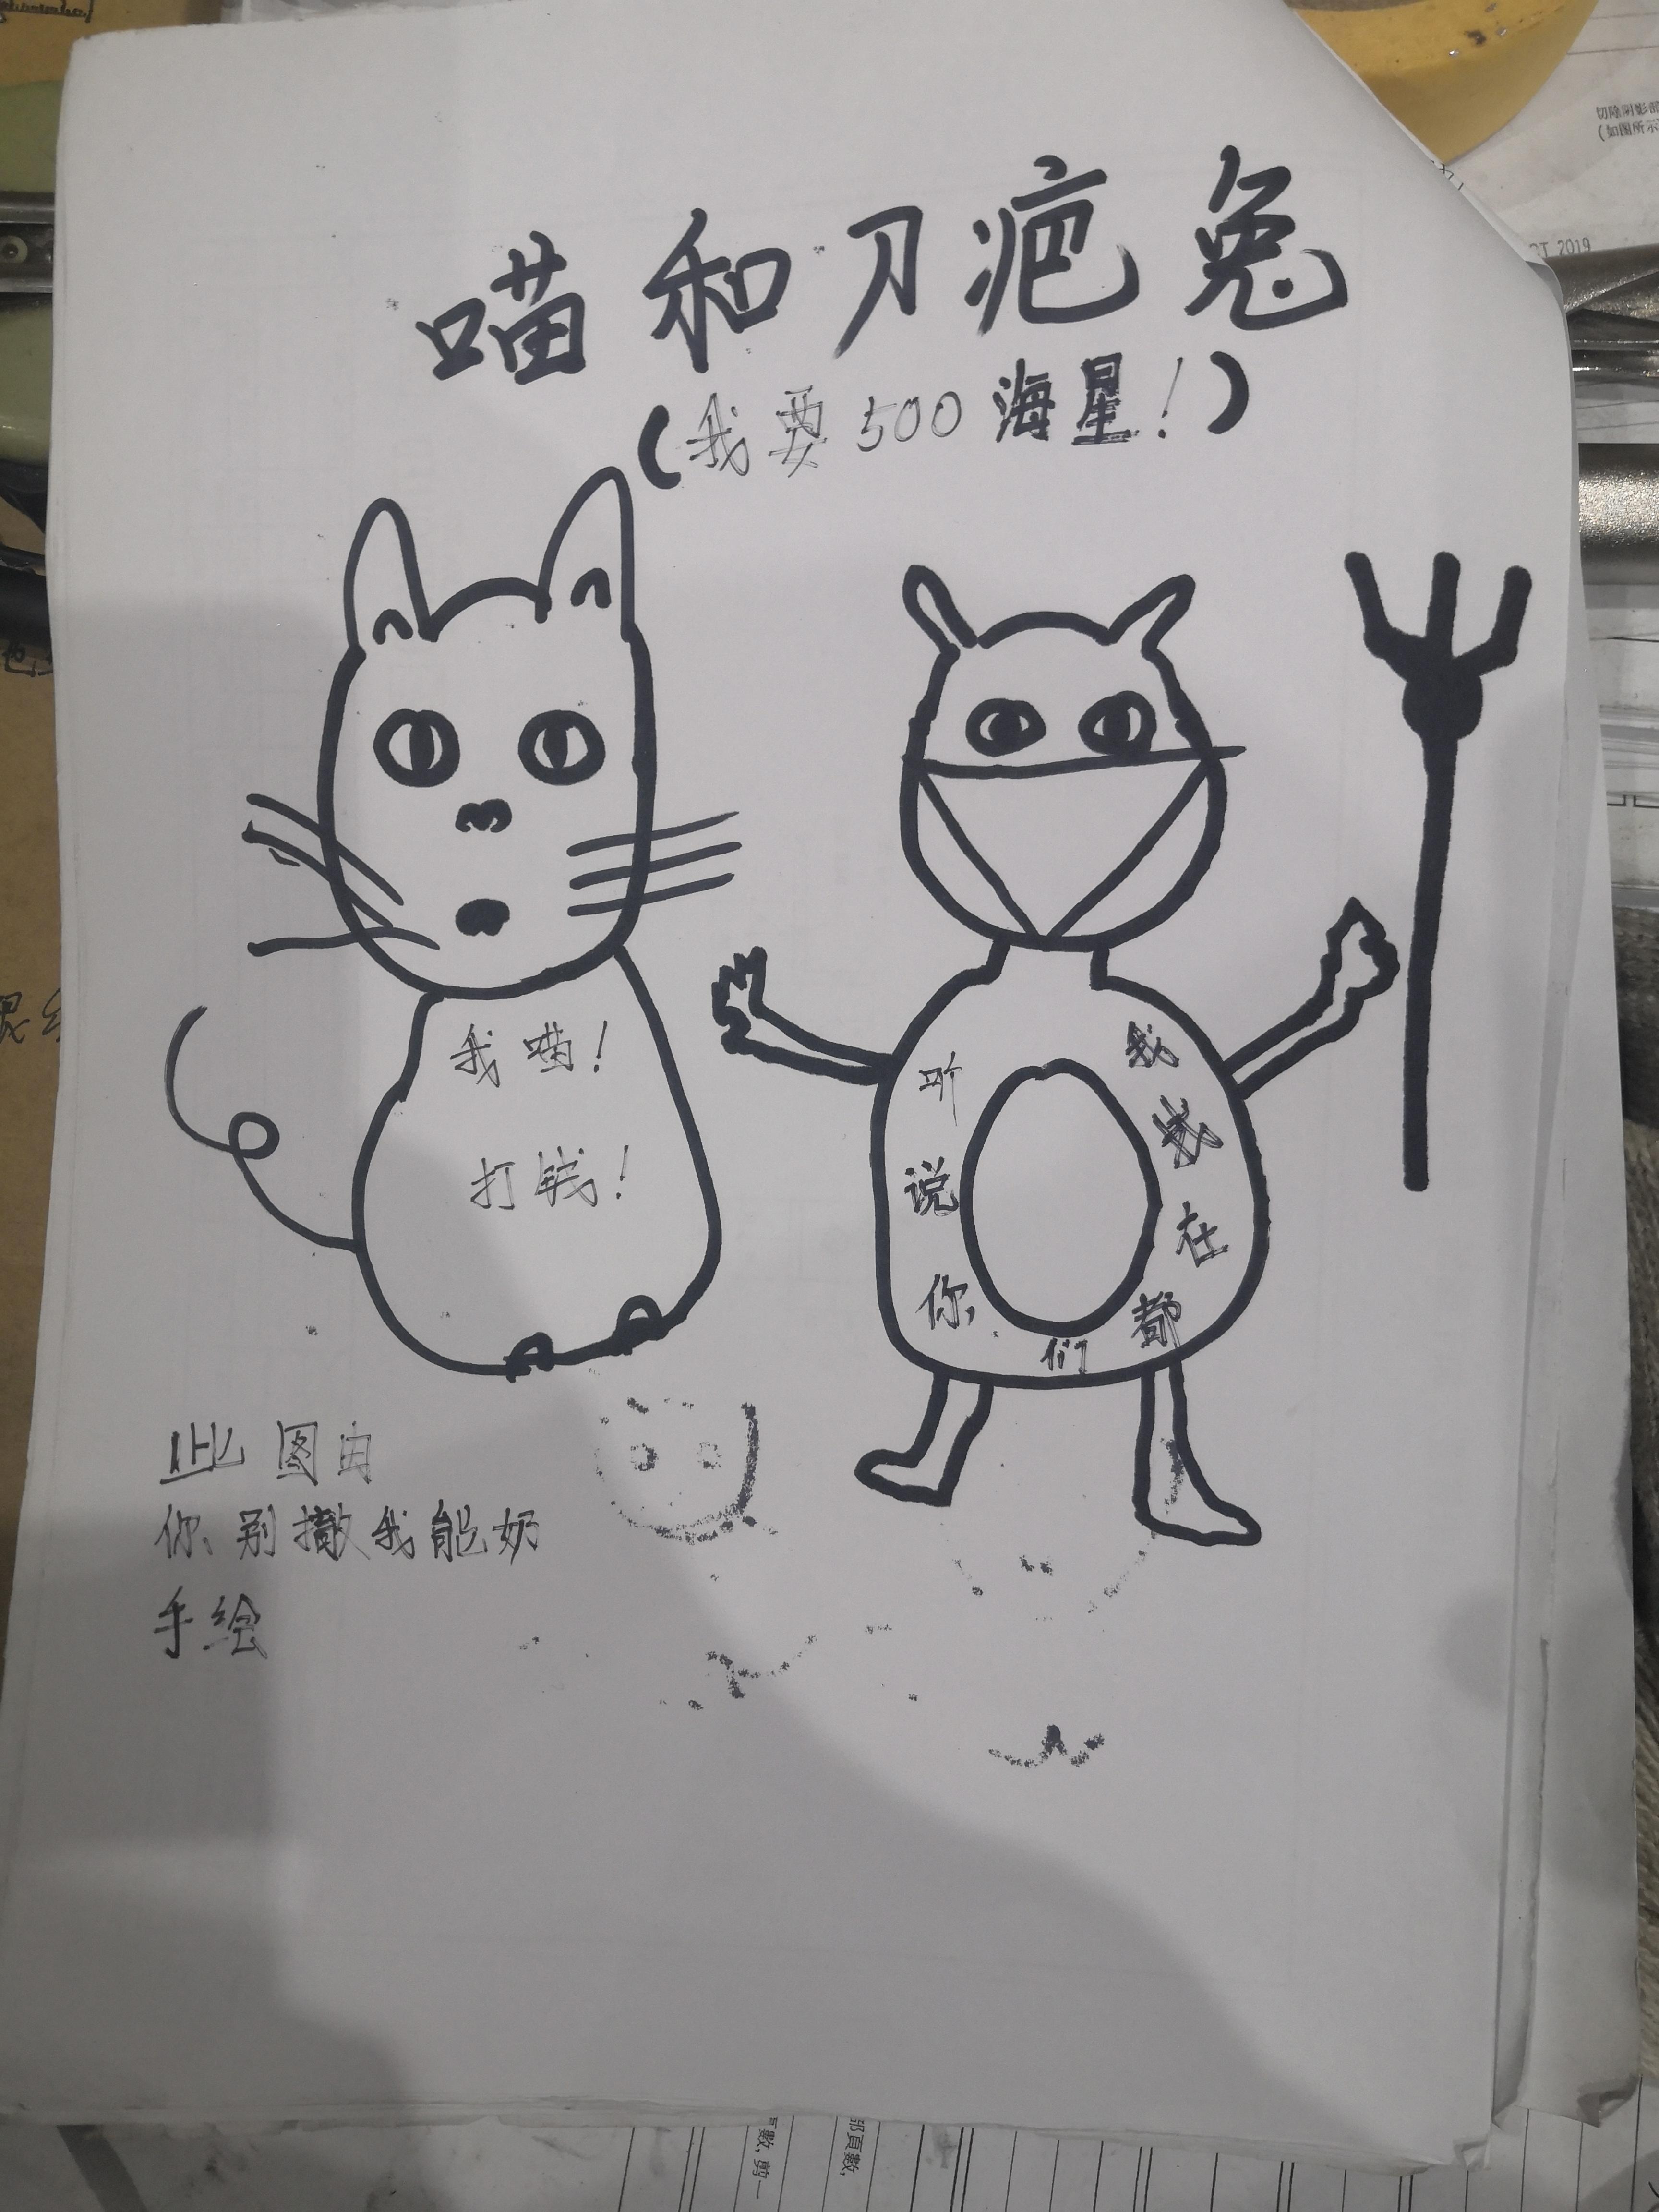 喵和刀疤兔
(我要500海星!)
我喵!
打钱!
听说你们都在找我
此图由
你别撤我能奶
手绘
切除阴影部
(如图所示
CT 2019